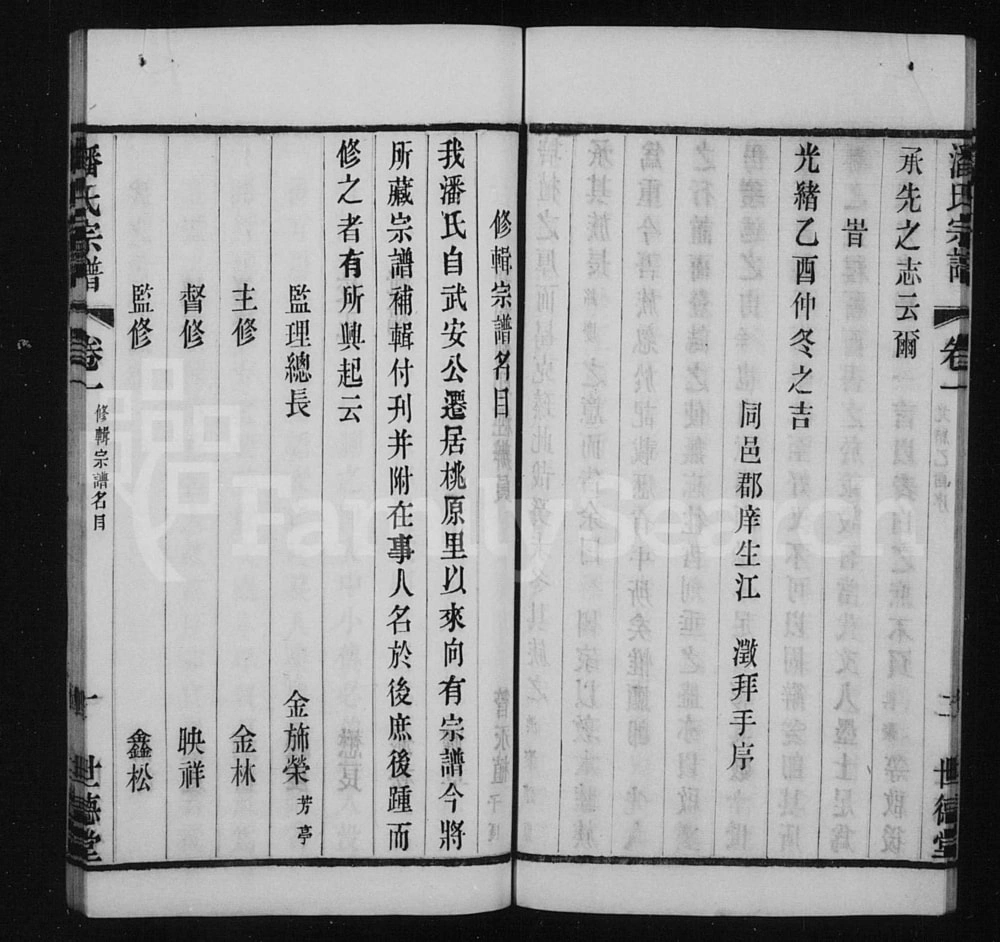 潘氏宗譜 卷一 光緒乙酉序 二 世德堂
承先之志云爾
旹
光緒乙酉仲冬之吉
同邑郡庠生江 澂拜手序
修輯宗譜名目
我潘氏自武安公遷居桃原里以來向有宗譜今將
所藏宗譜補輯付刊并附在事人名於後庶後踵而
修之者有所興起云
監理總長 金施榮芳亭
主修 金林
督修 映祥
監修 鑫松
潘氏宗譜 卷一 修輯宗譜名目 一 世德堂
FamilySearch